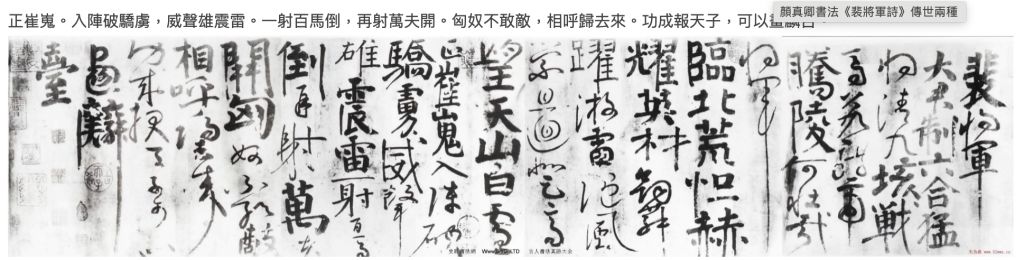 正崔嵬。入陣破驕虜，威聲雄震雷。一射百馬倒，再射萬夫開。匈奴不敢敵，相呼歸去來。功成報天子，可以畫麟台。
顏真卿書法《裴將軍詩》傳世兩種
裴將軍
大君制六合猛
將清九垓戰
馬若龍虎
騰陵何壯哉
將軍
臨北荒恒赫
耀英材劍舞
躍游電隨風
縈且迴登高
望天山白雲
正崔嵬入陣破
驕虜威聲
雄震雷一射百馬
倒再射萬夫
開匈奴不敢敵
相呼歸去來
功成報天子可以
畫麟
臺